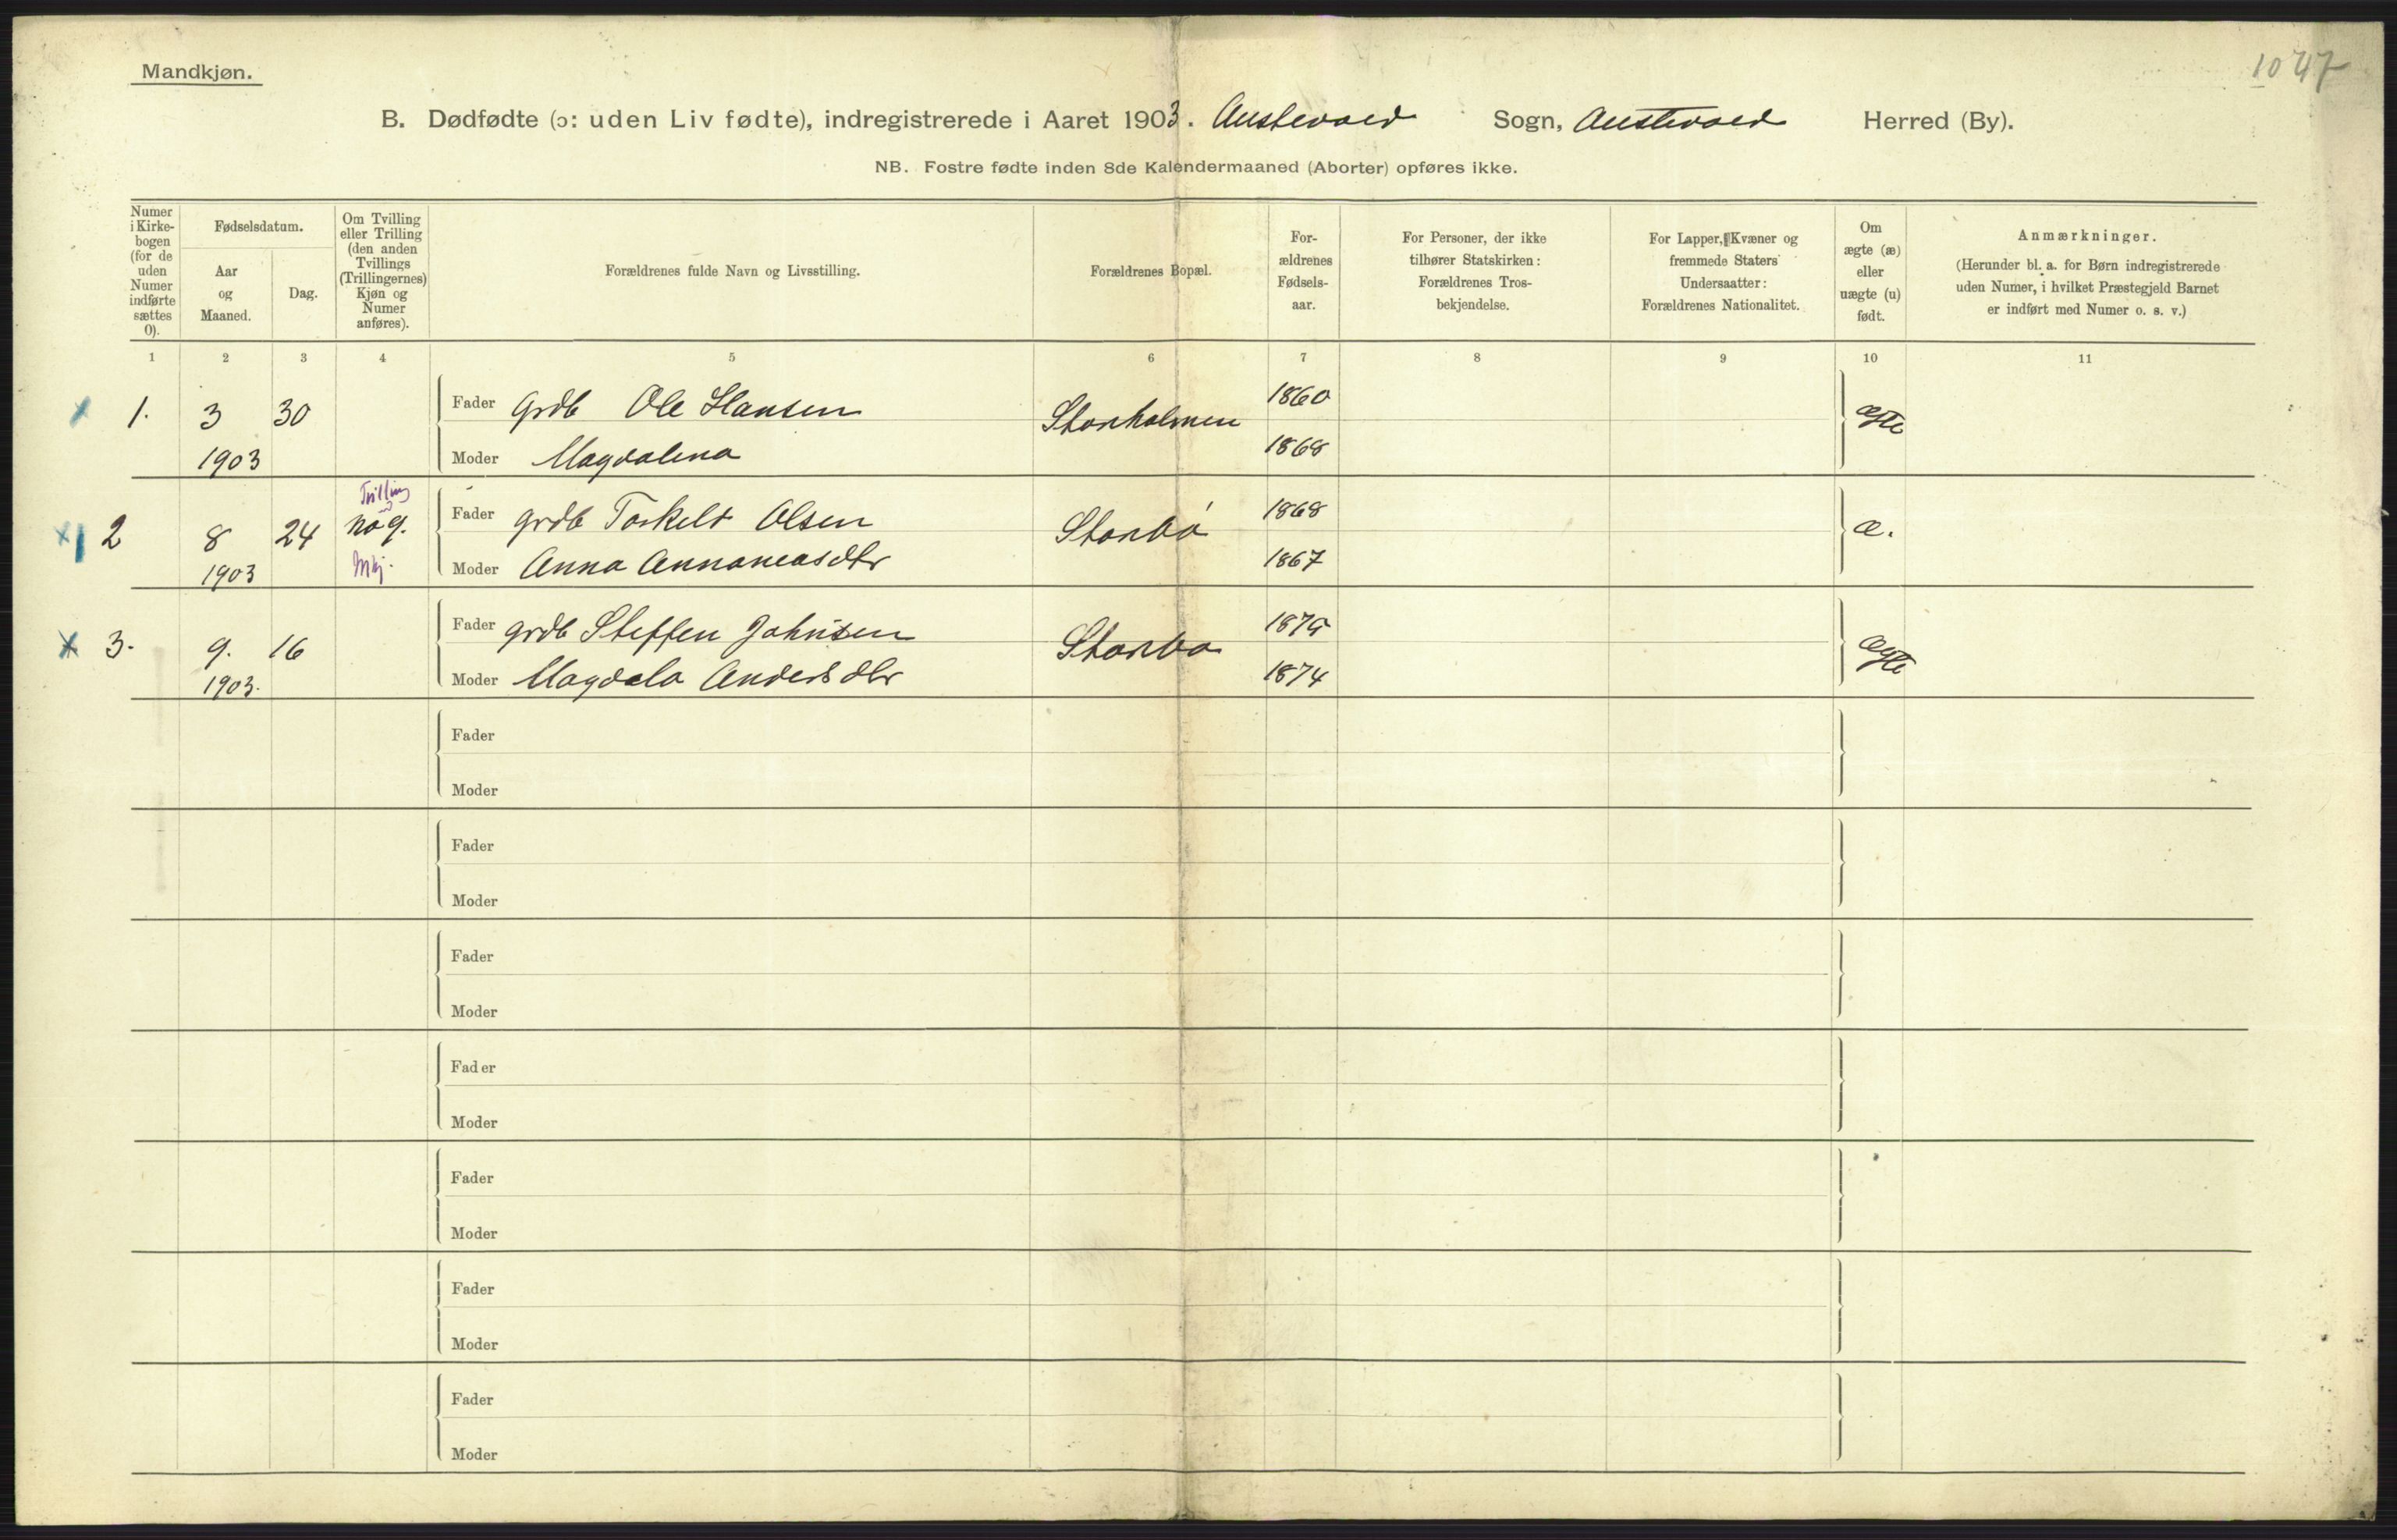 Mandkjøn.
1047
B. Dødfødte (ɔ: uden Liv fødte), indregistrerede i Aaret 1903. Austevold Sogn, Austevold Herred (By).
NB. Fostre fødte inden 8de Kalendermaaned (Aborter) opføres ikke.
Numer
i Kirke-
bogen
(for de
uden
Numer
indførte
sættes
0).
Fødselsdatum.
Aar
og
Maaned.
Dag.
Om Tvilling
eller Trilling
(den anden
Tvillings
(Trillingernes)
Kjøn og
Numer
anføres).
Forældrenes fulde Navn og Livsstilling.
Forældrenes Bopæl.
For-
ældrenes
Fødsels-
aar.
For Personer, der ikke
tilhører Statskirken:
Forældrenes Tros-
bekjendelse.
For Lapper, Kvæner og
fremmede Staters
Undersaatter:
Forældrenes Nationalitet.
Om
ægte (æ)
eller
uægte (u)
født.
Anmærkninger.
(Herunder bl. a. for Børn indregistrerede
uden Numer, i hvilket Præstegjeld Barnet
er indført med Numer o. s. v.)
1 2 3 4 5 6 7 8 9 10 11
1. 3 30 Fader Grdb Ole Hansen Storholmen 1860 ægte
1903 Moder Magdalena 1868
Tvilling
2 8 24 No 9. Fader grdb Torkeld Olsen Storbø 1868 æ.
1903 Mkj. Moder Anna Annaneasdtr 1867
3. 9. 16 Fader grdb Steffen Johnsen Storbø 1879 ægte
1903. Moder Magdela Andersdtr 1874
Fader
Moder
Fader
Moder
Fader
Moder
Fader
Moder
Fader
Moder
Fader
Moder
Fader
Moder